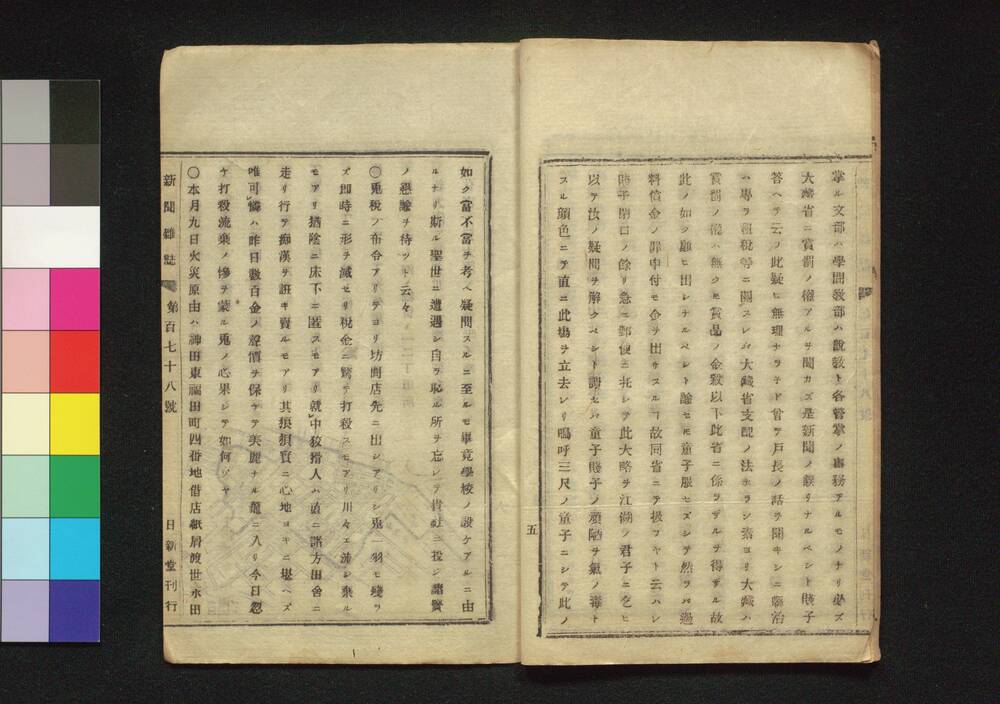 掌ル文部ハ學問敎部ハ說敎ト各管掌ノ事務アルモノナリ必ズ
大藏省ニ賞罰ノ權アルヲ聞カズ是新聞ノ誤リナルベシト賤子
答ヘテ云フ此疑ヒ無理ナラネド曾テ戶長ノ話ヲ聞キシニ縣治
ハ專ラ租稅等ニ關スレバ大藏省支配ノ法ナラン素ヨリ大藏ハ
賞罰ノ儀ハ無クモ賞品ノ金穀以下此省ニ係ラザルヲ得ザル故
此ノ如ク願ヒ出シナルベシト諭セモ童子服セズシテ然ラバ過
料償金ノ罪申付モ金ヲ出サスルヿ故同省ニテ扱フヤト云ハレ
時子閉口ノ餘リ急ニ郵便ニ托シテ此大略ヲ江湖ノ君子ニ乞ヒ
以テ汝ノ疑問ヲ解クベシト謂ヘバ童子賤子ノ頑陋ヲ氣ノ毒ト
スル顏色ニテ直ニ此塲ヲ立去レリ嗚呼三尺ノ童子ニシテ此ノ
五
如ク當不當ヲ考ヘ疑問スルニ至ルモ畢竟學校ノ設ケアルニ由
ルナリ斯ル聖世ニ遭遇シ自ラ恥ル所ヲ忘レテ貴社ニ投シ諸賢
ノ懇諭ヲ待ツト云々
〇兎稅ノ布令アリテヨリ坊間店先ニ出シアリシ兎一羽モ殘ラ
ズ即時ニ形ヲ減セリ稅金ニ驚テ打殺スモアリ川々エ流シ棄ル
モアリ猶陰ニ床下ニ匿スモアリ就中狡猾人ハ直ニ諸方田舍ニ
走リ行テ痴漢ヲ誑キ賣ルモアリ其狼狽實ニ心地ヨキニ堪ヘズ
唯可憐ハ昨日數百金ノ聲價ヲ保ケテ美麗ナル籠ニ入リ今日忽
ケ打殺流棄ノ慘ヲ蒙ル兎ノ心果シテ如何ゾヤ
〇本月九日火災原由ハ神田東福田町四番地借店紙屑渡世永田
新聞雜誌 第百七十八號 日新堂刊行